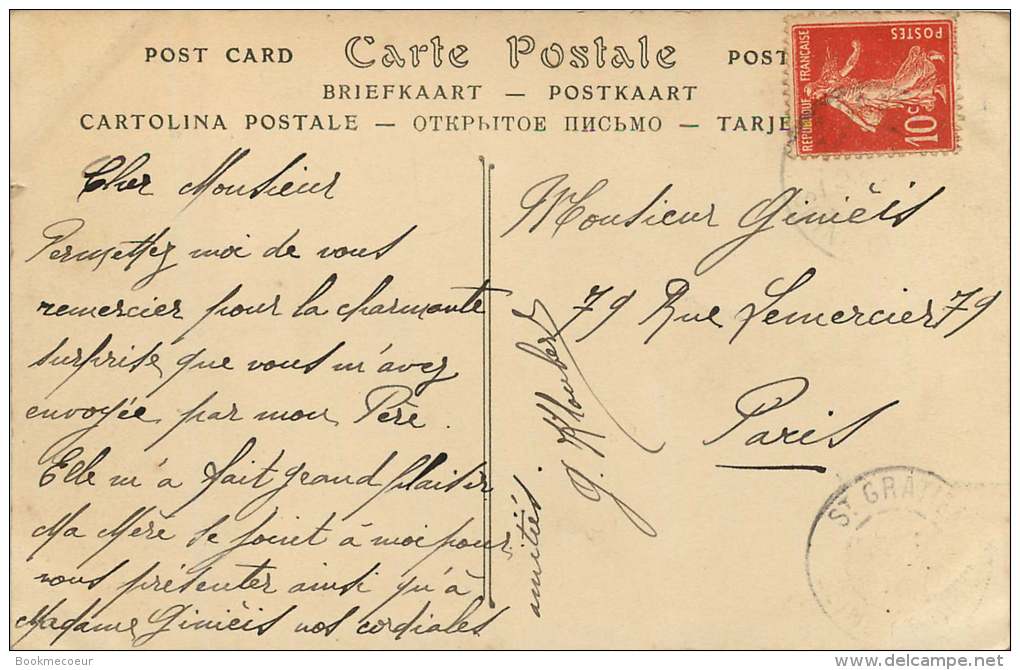 POST CARD Carte Postale POST
BRIEFKAART — POSTKAART
CARTOLINA POSTALE — ОТКРЫТОЕ ПИСЬМО — TARJE
REPUBLIQUE FRANÇAISE
POSTES
10c
Cher Monsieur
Permettez moi de vous
remercier pour la charmante
surprise que vous m'avez
envoyée par mon Père.
Elle m'a fait grand plaisir
Ma Mère se joint à moi pour
vous présenter ainsi qu'à
Madame Giniéis nos cordiales
amitiés.
Monsieur Giniéis
79 Rue Lemercier 79
Paris
ST GRATIE
Bookmecoeur
delcampe.net